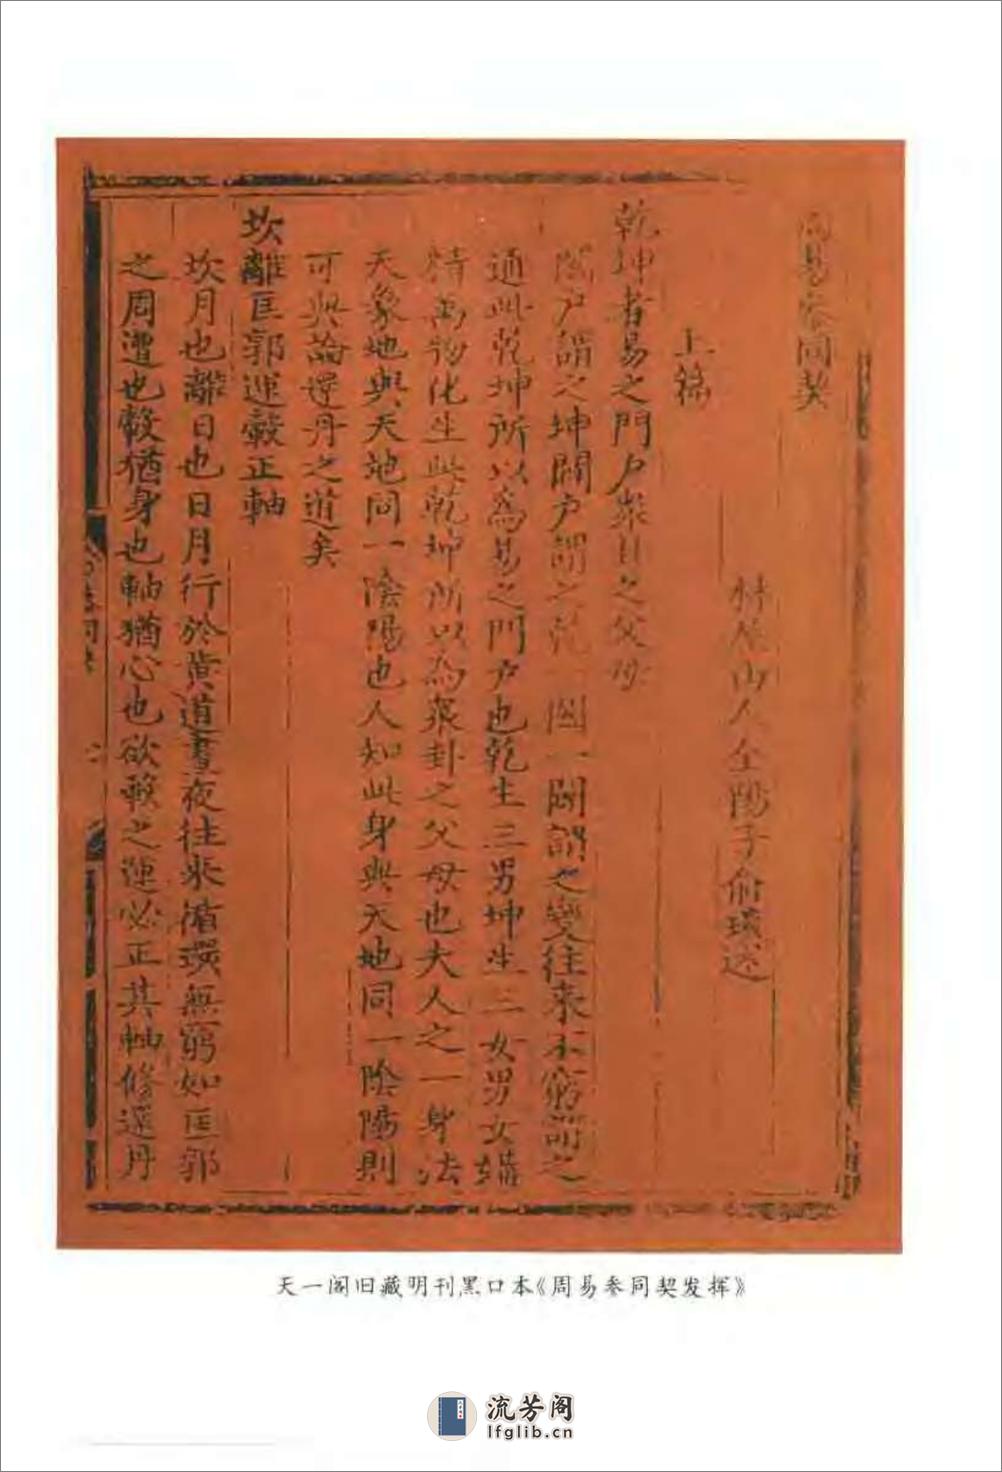 周易參同契
林屋山人全陽子俞琰述
上篇
乾坤者易之門戶衆卦之父母
闔戶謂之坤闢戶謂之乾一闔一闢謂之變往來不窮謂之
通此乾坤所以爲易之門戶也乾生三男坤生三女男女媾
精萬物化生此乾坤所以为衆卦之父母也夫人之一身法
天象地與天地同一陰陽也人知此身與天地同一陰陽則
可與論還丹之道矣
坎離匡郭運轂正軸
坎月也離日也日月行於黃道晝夜往來循環無窮如匡郭
之周遭也轂猶身也軸猶心也欲轂之運必正其軸修還丹
天一阁旧藏明刊黑口本《周易参同契发挥》
流芳阁
lfglib.cn